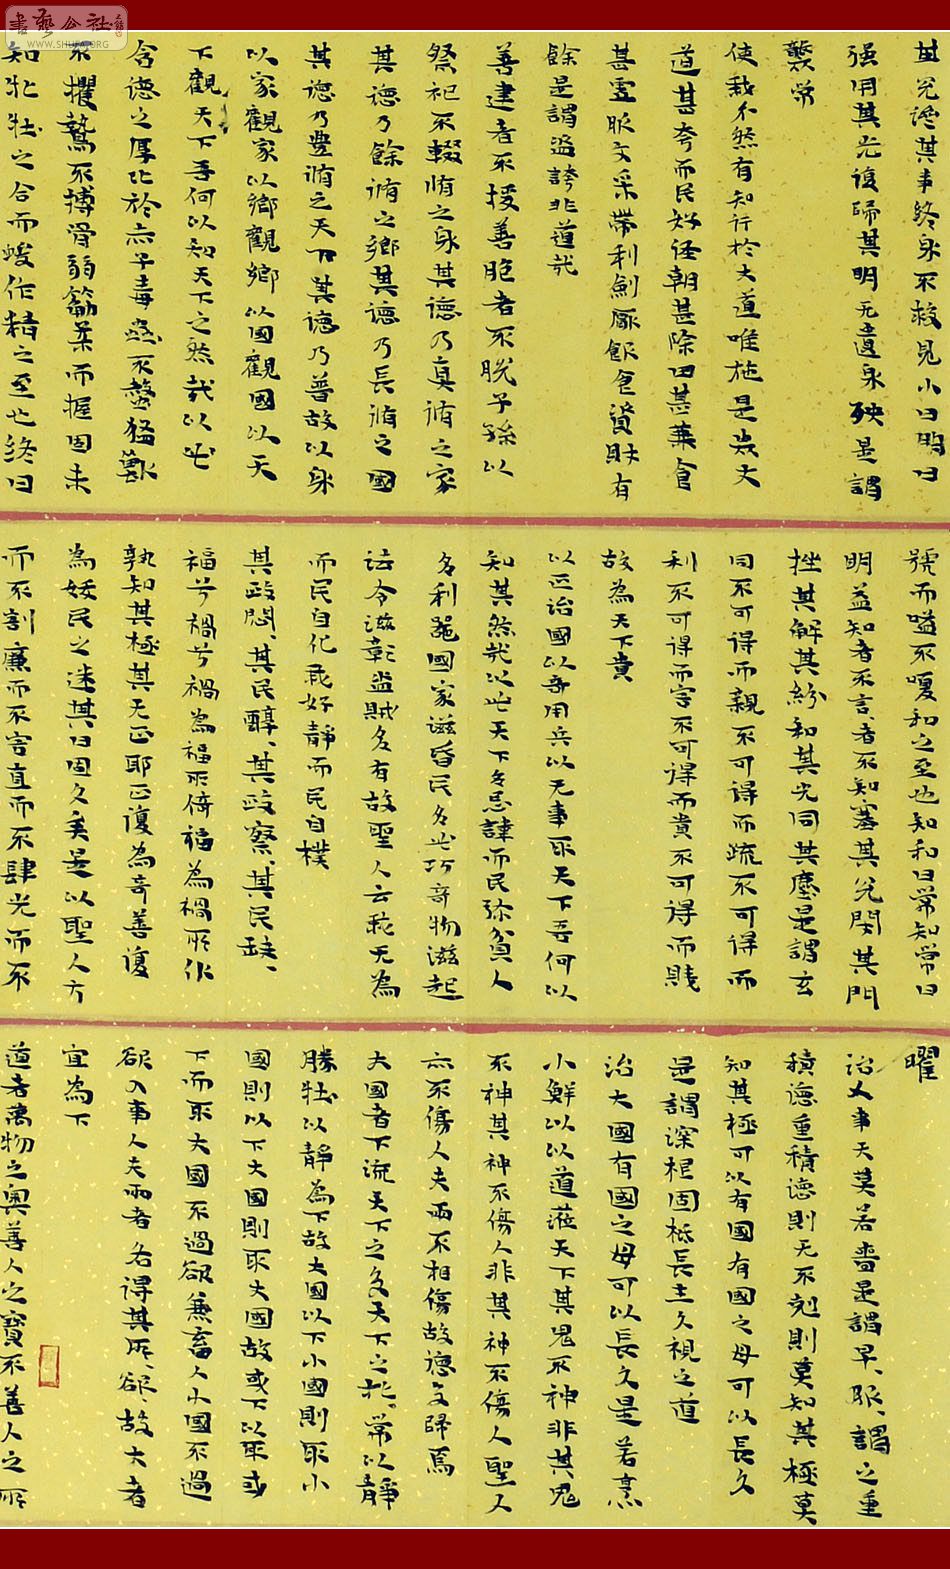 書藝公社
WWW.SHUFA.ORG
其兌濟其事終身不救見小曰明曰
强用其光復歸其明无遺身殃是謂
襲常
使我不然有知行於大道唯施是畏大
道甚夸而民好徑朝甚除田甚蕪倉
甚虛服文采帶利劍厭飲食資財有
餘是謂盜誇非道哉
善建者不拔善抱者不脫子孫以
祭祀不輟脩之身其德乃真脩之家
其德乃餘脩之鄉其德乃長脩之國
其德乃豐脩之天下其德乃普故以身
以家觀家以鄉觀鄉以國觀國以天
下觀天下吾何以知天下之然哉以此
含德之厚比於赤子毒蟲不螫猛獸
不攫鷙不搏骨弱筋柔而握固未
知牝牡之合而㕙作精之至也終曰
號而嗌不嗄和之至也知和曰常知常曰
明益知者不言、者不知塞其兌閉其門
挫其解其紛和其光同其塵是謂玄
同不可得而親不可得而疏不可得而
利不可得而害不可得而貴不可得而賤
故為天下貴
以正治國以奇用兵以无事取天下吾何以
知其然哉以此天下多忌諱而民弥貧人
多利器國家滋昏民多此巧奇物滋起
法令滋彰盗賊多有故聖人云我无為
而民自化我好靜而民自樸
其政悶、其民醇、其政察、其民缺、
福兮禍兮禍為福所倚福為禍所伏
孰知其極其无正耶正復為奇善復
為妖民之迷其日固久矣是以聖人方
而不割廉而不害直而不肆光而不
曜
治人事天莫若嗇是謂早、服、謂之重
積德重積德則无不剋則莫知其極莫
知其極可以有國有國之母可以長久
是謂深根固柢長生久視之道
治大國有國之母可以長久是若烹
小鮮以以道莅天下其鬼不神非其鬼
不神其神不傷人非其神不傷人聖人
亦不傷人夫兩不相傷故德交歸焉
大國者下流天下之交天下之牝、常以靜
勝牡以靜為下故大國以下小國則取小
國則以下大國則取大國故或下以取或
下而取大國不過欲兼畜人小國不過
欲入事人夫兩者各得其所、欲、故大者
宜為下
道者萬物之奥善人之寶不善人之所